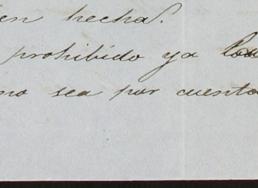 en hecha.
prohibido ya
no sea por cuenta